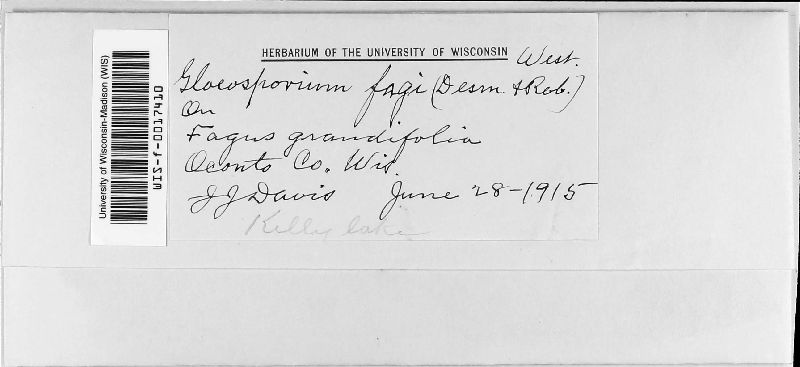 University of Wisconsin-Madison (WIS)
WIS-f-0017410
HERBARIUM OF THE UNIVERSITY OF WISCONSIN
West.
Gloeosporium fagi (Desm. & Rob.)
On
Fagus grandifolia
Oconto Co. Wis.
JJ Davis June 28-1915
Kelly lake